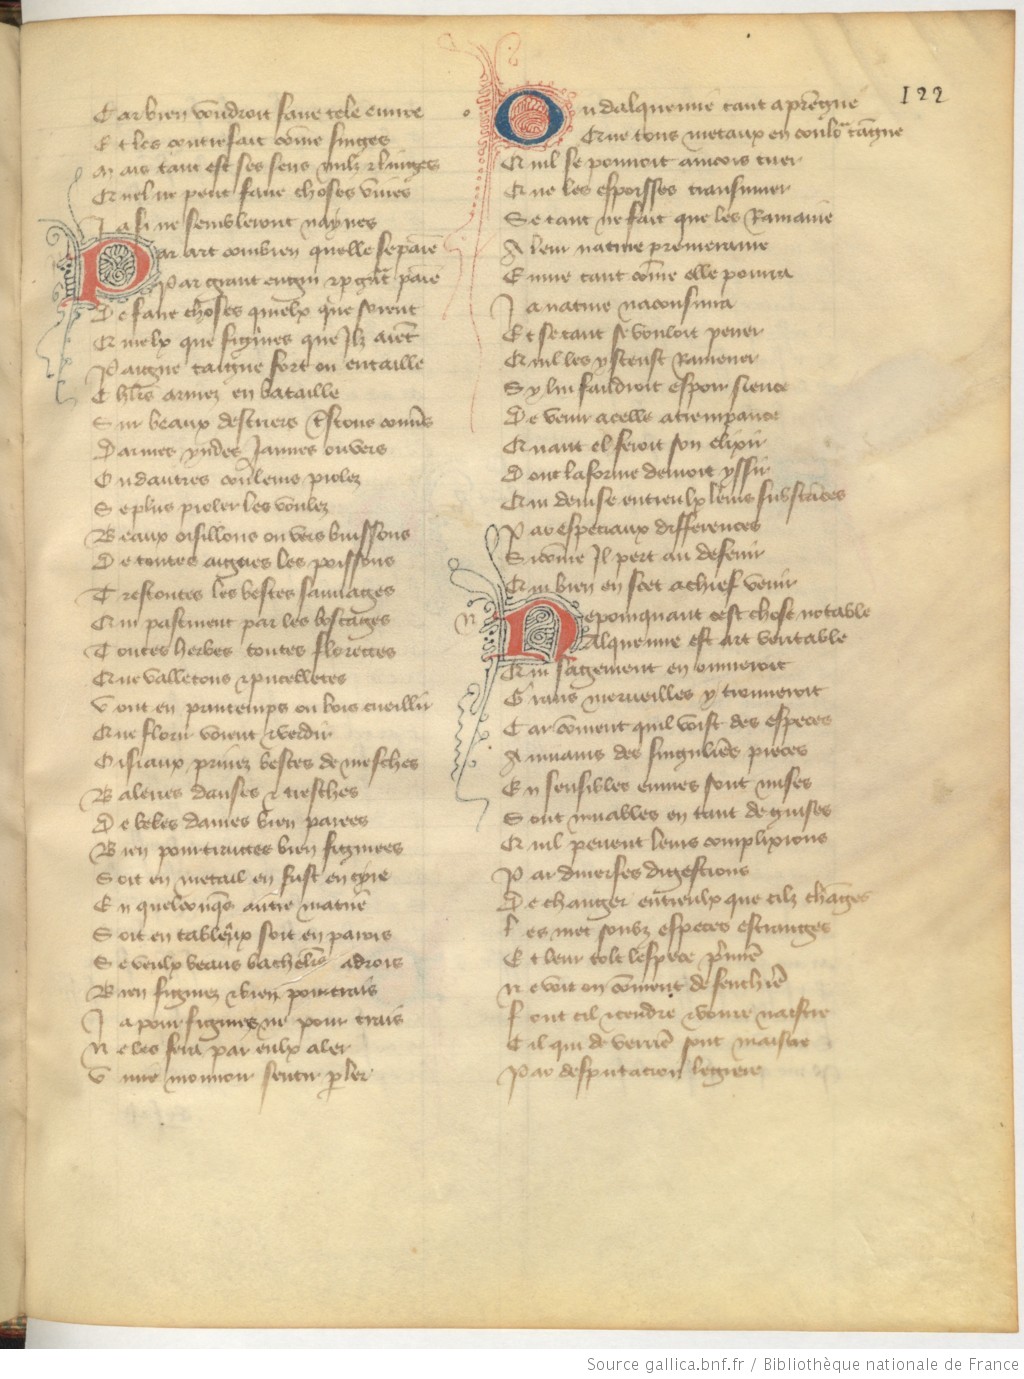 Car bien voudroit faire tele euure
Et les contrefait cõme singes
Mais tant est ses sens nulz & linges
Quel ne peut faire choses viues
Ja si ne sembleront nayues
Par art combien quelle se paine
Par grant engin & p grãt paine
De faire choses quielx que soient
Quielx que figures que Ilz aiẽt
Paigne taigne fort ou entaille
Chlrs armez en bataille
Sur beaux destriers tstous couuers
Darmes yndes Jaunes ou vers
Ou dautres couleurs piolez
Se plus pioler les voulez
Beaux oisillons ou vers buissons
De toutes aigues les poissons
Trestoutes les bestes sauuages
Qui pasturent par les boscages
Toutes herbes toutes florectes
Que valletons & pucelletes
Vont en printemps ou bois cueillir
Que florir voient & verdir
Oisiaux priuez bestes demesches
Baleries danses & tresches
De beles dames bien parees
Bien pourtraictes bien figurees
Soit en metail en fust en cyre
En quelconqs autre matire
Soit en tableaux soit en parois
Se veulx beaus bachelers adrois
Bien figurez & bien pourtrais
Ja pour figures ne pour trais
Ne les fera par eulx aler
Viure mouuoir sentir pler
122
Ou dalquemie tant apreigne
Que tous metaux en coulor taigne
Quil se pourroit aincois tuer
Que les esporsses transmuer
Se tant ne fait que les Ramaine
A leur nature premeraine
Euure tant cõme elle pourra
Ja nature naconsuiura
Et se tant se vouloit pener
Quil les y sceust Ramener
Sy lui faudroit espoir sience
De venir a celle atrempance
Quant el feroit son elixir
Dont la forme deuroit yssir
Qui deuise entreulx leurs substãces
Par especiaux differences
Si cõme Il pert au defenir
Qui bien en scet a chief venir
n
Nepourquant cest chose notable
Alquemie est art veritable
Qui sagement en ouueroit
Grans merueilles y trouueroit
Car cõment quil voist des especes
Au mains des singulieres pieces
En sensibles euures sont mises
Sont muables en tant de guises
Quil peuent leurs complixions
Par diuerses digestions
De changer entreulx que cilz chãges
Les met soubz especes estranges
Et leur tolt lespece primẽ
Ne voit on cõment de feuchiere
Font cil & cendre & voirre naistre
Cil qui de verriẽ sont maistre
Par desputacion legiere
Source gallica.bnf.fr / Bibliothèque nationale de France